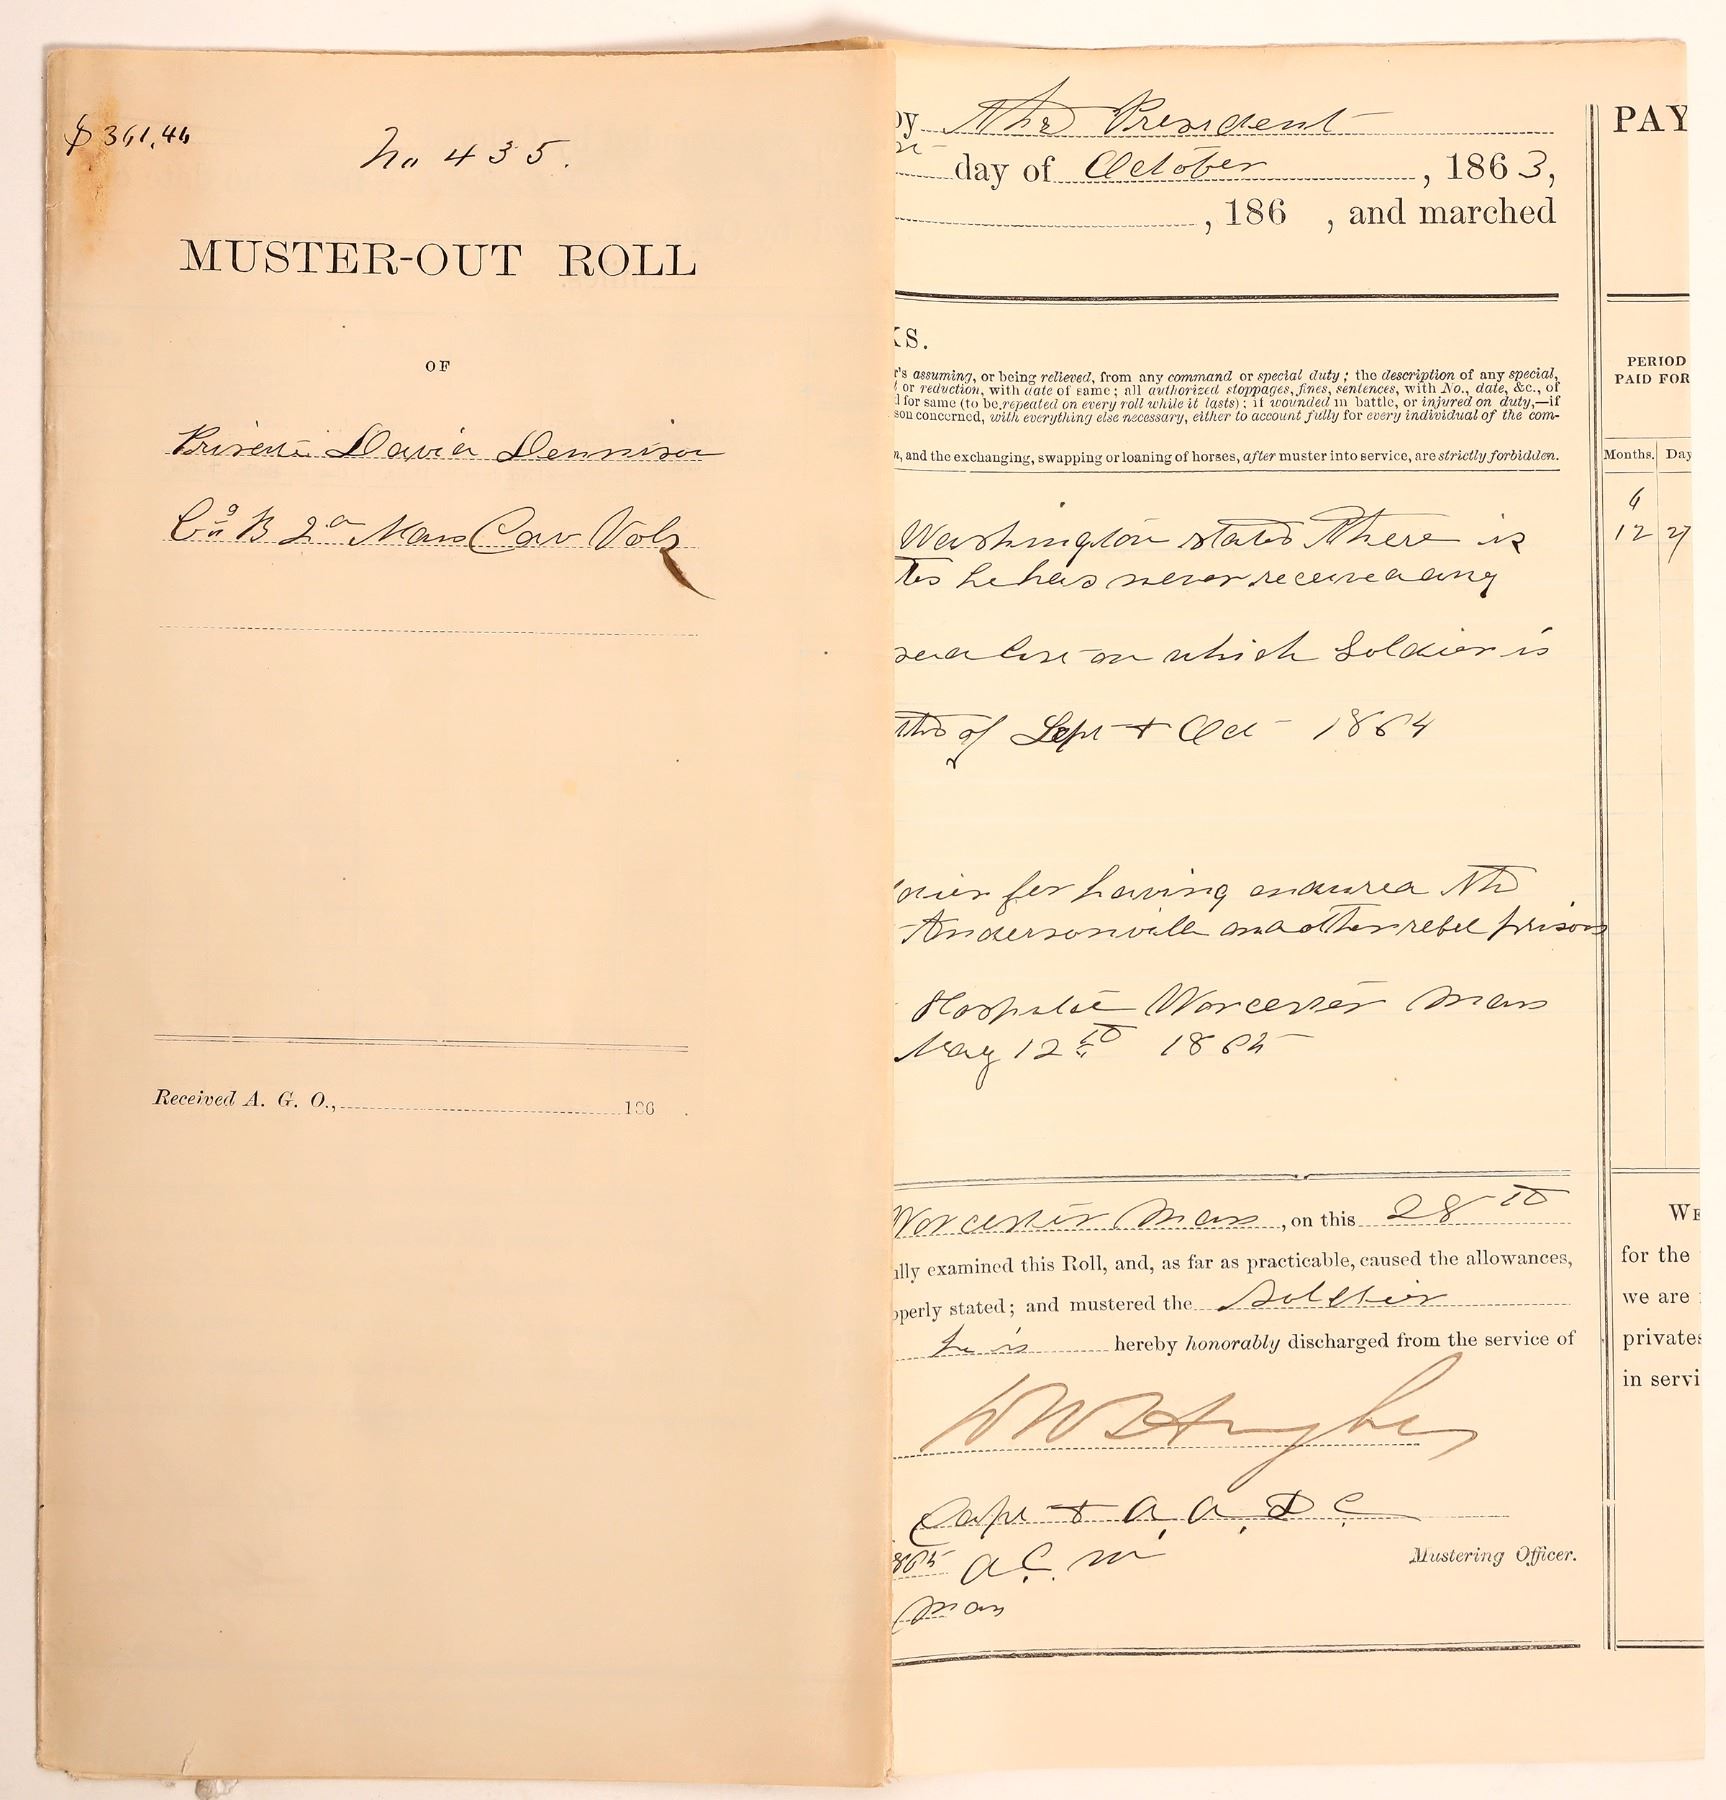 $ 361,46
No 435.
MUSTER-OUT ROLL
OF
Private David Dennison
Co B 2d Mass Cav Vols
Received A. G. O., 186 .
by The President
day of October , 1863,
, 186 , and marched
KS.
r's assuming, or being relieved, from any command or special duty; the description of any special,
or reduction, with date of same; all authorized stoppages, fines, sentences, with No., date, &c., of
d for same (to be repeated on every roll while it lasts); if wounded in battle, or injured on duty,—if
son concerned, with everything else necessary, either to account fully for every individual of the com-
n, and the exchanging, swapping or loaning of horses, after muster into service, are strictly forbidden.
Washington states There is
tes he has never received any
on which Soldier is
ths of Sept & Oct 1864
dier for having endured the
Andersonville and other rebel prisons
Hospital Worcester Mass
May 12th 1865
Worcester Mass , on this 28th
ully examined this Roll, and, as far as practicable, caused the allowances,
operly stated; and mustered the Soldier
he is hereby honorably discharged from the service of
Hughes
Capt & A. A. D. C.
1865 A. C. M
Mustering Officer.
Mass
PAY
PERIOD
PAID FOR
Months. Day
6
12 27
WE
for the
we are
privates
in servi